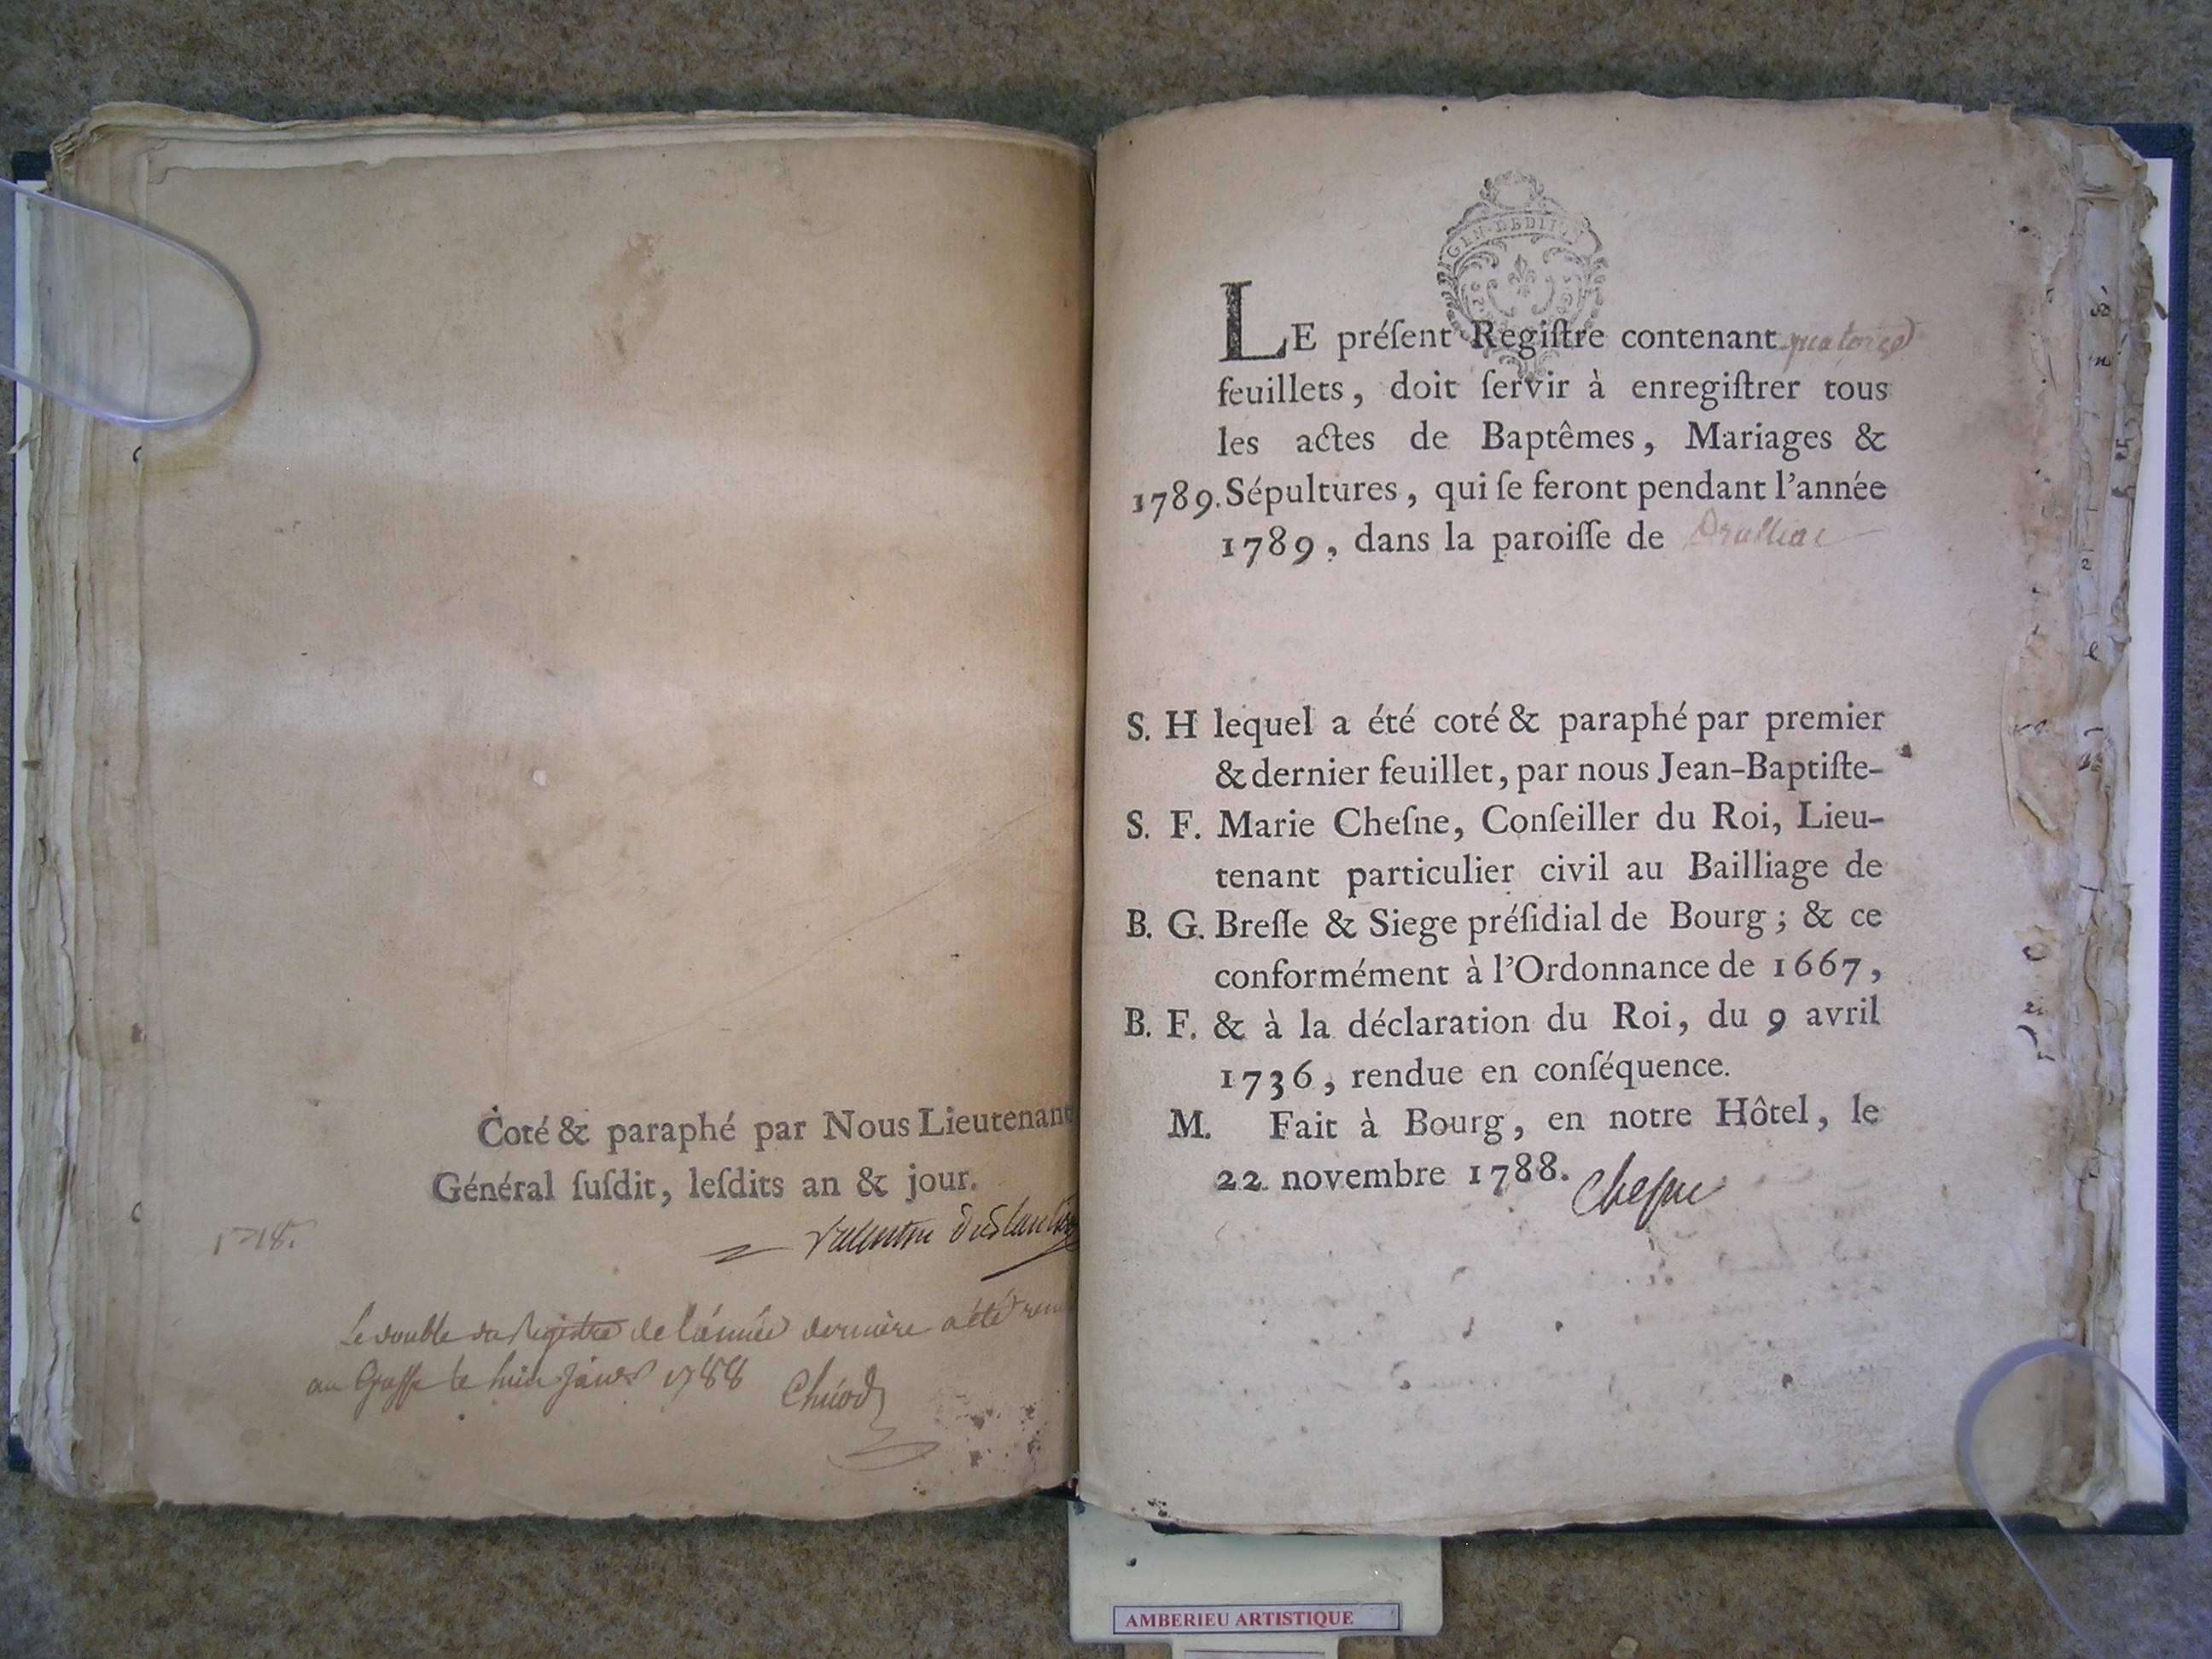 Coté & paraphé par Nous Lieutenant
Général ſuſdit, leſdits an & jour.
Le double du Registre de l'année dernière a été
au Greffe le huit janvr 1788
GEN·DEDIT
LE préſent Regiſtre contenant quatorze
feuillets, doit ſervir à enregiſtrer tous
les actes de Baptêmes, Mariages &
1789. Sépultures, qui ſe feront pendant l'année
1789, dans la paroiſſe de
S. H lequel a été coté & paraphé par premier
& dernier feuillet, par nous Jean-Baptiſte-
S. F. Marie Cheſne, Conſeiller du Roi, Lieu-
tenant particulier civil au Bailliage de
B. G. Breſſe & Siege préſidial de Bourg ; & ce
conformément à l'Ordonnance de 1667,
B. F. & à la déclaration du Roi, du 9 avril
1736, rendue en conſéquence.
M. Fait à Bourg, en notre Hôtel, le
22 novembre 1788. Cheſne
AMBERIEU ARTISTIQUE